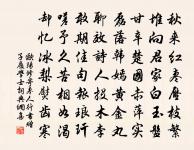 秋來紅棗壓枝繁
堆向君家白玉盤
甘辛楚國赤萍實
磊落韓嫣黃金丸
聊效詩人投木李
敢期佳句報琅玕
嗟予久苦相如渴
卻憶冰梨熨齒寒
歐陽修寄棗人行書贈
子履學士